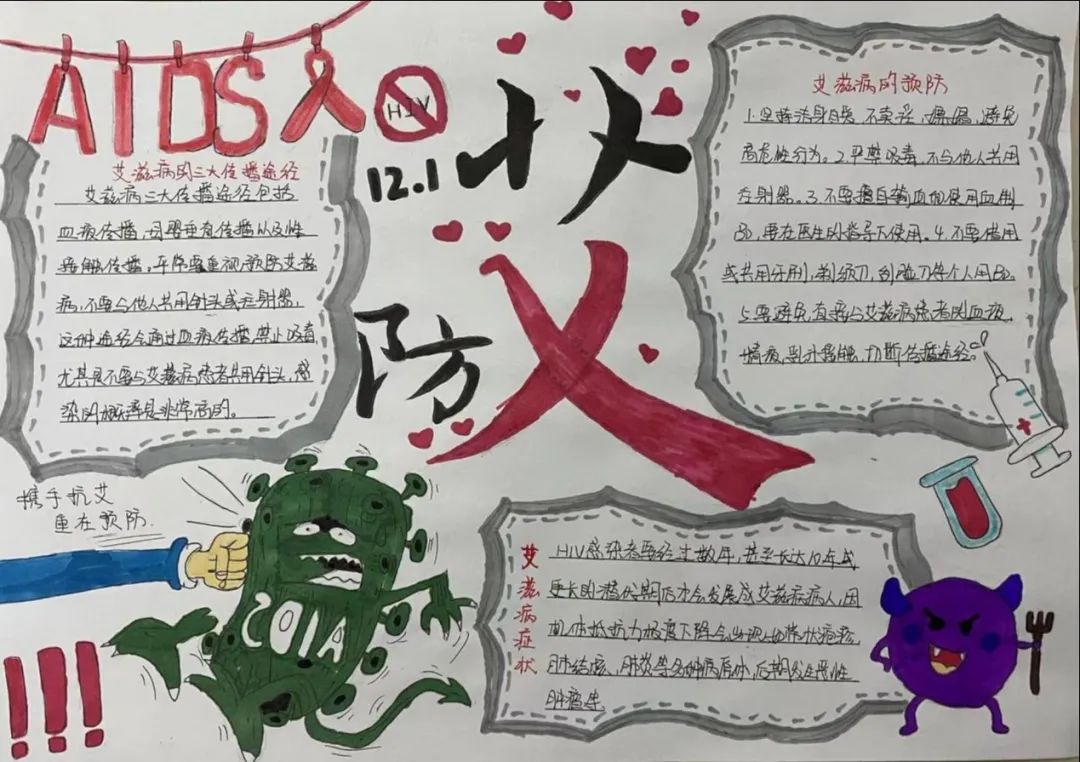 AIDS
HIV
12.1
防
艾滋病的三大传播途径
艾滋病三大传播途径包括
血液传播,母婴垂直传播以及性
接触传播。平常要重视预防艾滋
病,不要与他人共用针头或注射器,
这种途径会通过血液传播,禁止吸毒
尤其是不要与艾滋病患者共用针头,感
染的概率是非常高的。
艾滋病的预防
1.坚持洁身自爱,不卖淫、嫖娼,避免
高危性行为。2.严禁吸毒,不与他人共用
注射器。3.不要擅自输血和使用血制
品,要在医生的指导下使用。4.不要借用
或共用牙刷,剃须刀,刮脸刀等个人用品。
5.要避免直接与艾滋病患者的血液,
精液,乳汁接触,切断传播途径。
携手抗艾
重在预防.
AIDS
!!!
艾滋病症状
HIV感染者要经过数年,甚至长达10年或
更长的潜伏期后才会发展成艾滋病病人,因
机体抵抗力极度下降会出现如带状疱疹,
肺结核,肺炎等多种病原体,后期发生恶性
肿瘤生